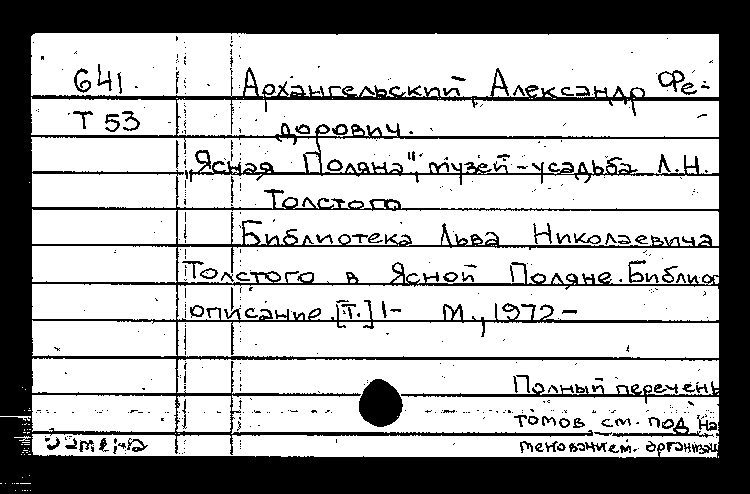 641. Архангельский, Александр Фе-
Т 53 дорович.
„Ясная Поляна", музей-усадьба Л.Н.
Толстого
Библиотека Льва Николаевича
Толстого в Ясной Поляне. Библио
описание. [Т.] 1- М., 1972-
Полный перечень
томов см. под На
менованием. организац